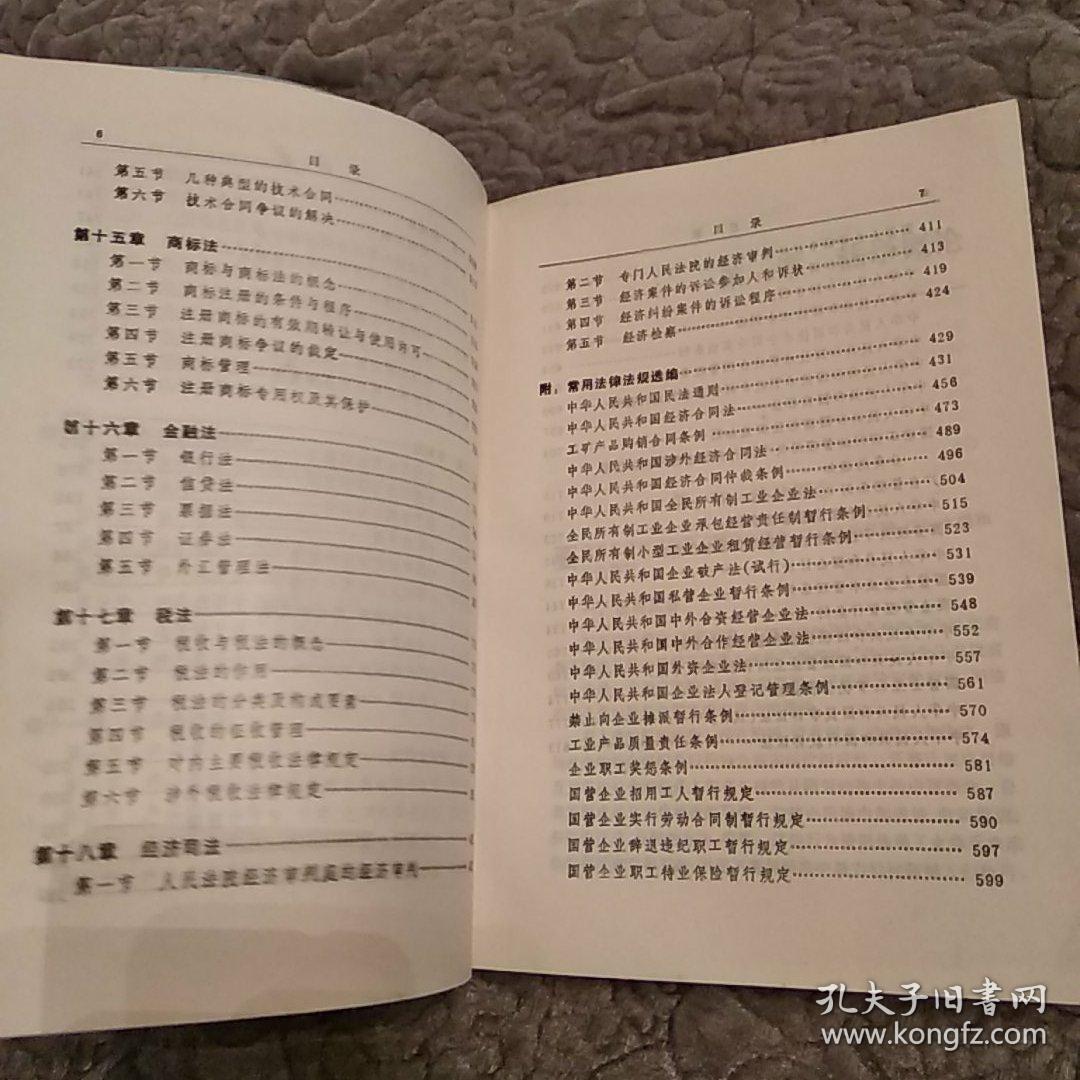 6
目 录
第五节 几种典型的技术合同
第六节 技术合同争议的解决
第十五章 商标法
第一节 商标与商标法的概念
第二节 商标注册的条件与程序
第三节 注册商标的有效期转让与使用许可
第四节 注册商标争议的裁定
第五节 商标管理
第六节 注册商标专用权及其保护
第十六章 金融法
第一节 银行法
第二节 信贷法
第三节 票据法
第四节 证券法
第五节 外汇管理法
第十七章 税法
第一节 税收与税法的概念
第二节 税法的作用
第三节 税法的分类及构成要素
第四节 税收的征收管理
第五节 对内主要税收法律规定
第六节 涉外税收法律规定
第十八章 经济司法
第一节 人民法院经济审判庭的经济审判
7
目 录
第二节 专门人民法院的经济审判 411
第三节 经济案件的诉讼参加人和诉状 413
第四节 经济纠纷案件的诉讼程序 419
第五节 经济检察 424
附：常用法律法规选编 429
中华人民共和国民法通则 431
中华人民共和国经济合同法 456
工矿产品购销合同条例 473
中华人民共和国涉外经济合同法 489
中华人民共和国经济合同仲裁条例 496
中华人民共和国全民所有制工业企业法 504
全民所有制工业企业承包经营责任制暂行条例 515
全民所有制小型工业企业租赁经营暂行条例 523
中华人民共和国企业破产法(试行) 531
中华人民共和国私营企业暂行条例 539
中华人民共和国中外合资经营企业法 548
中华人民共和国中外合作经营企业法 552
中华人民共和国外资企业法 557
中华人民共和国企业法人登记管理条例 561
禁止向企业摊派暂行条例 570
工业产品质量责任条例 574
企业职工奖惩条例 581
国营企业招用工人暂行规定 587
国营企业实行劳动合同制暂行规定 590
国营企业辞退违纪职工暂行规定 597
国营企业职工待业保险暂行规定 599
孔夫子旧书网
www.kongfz.com